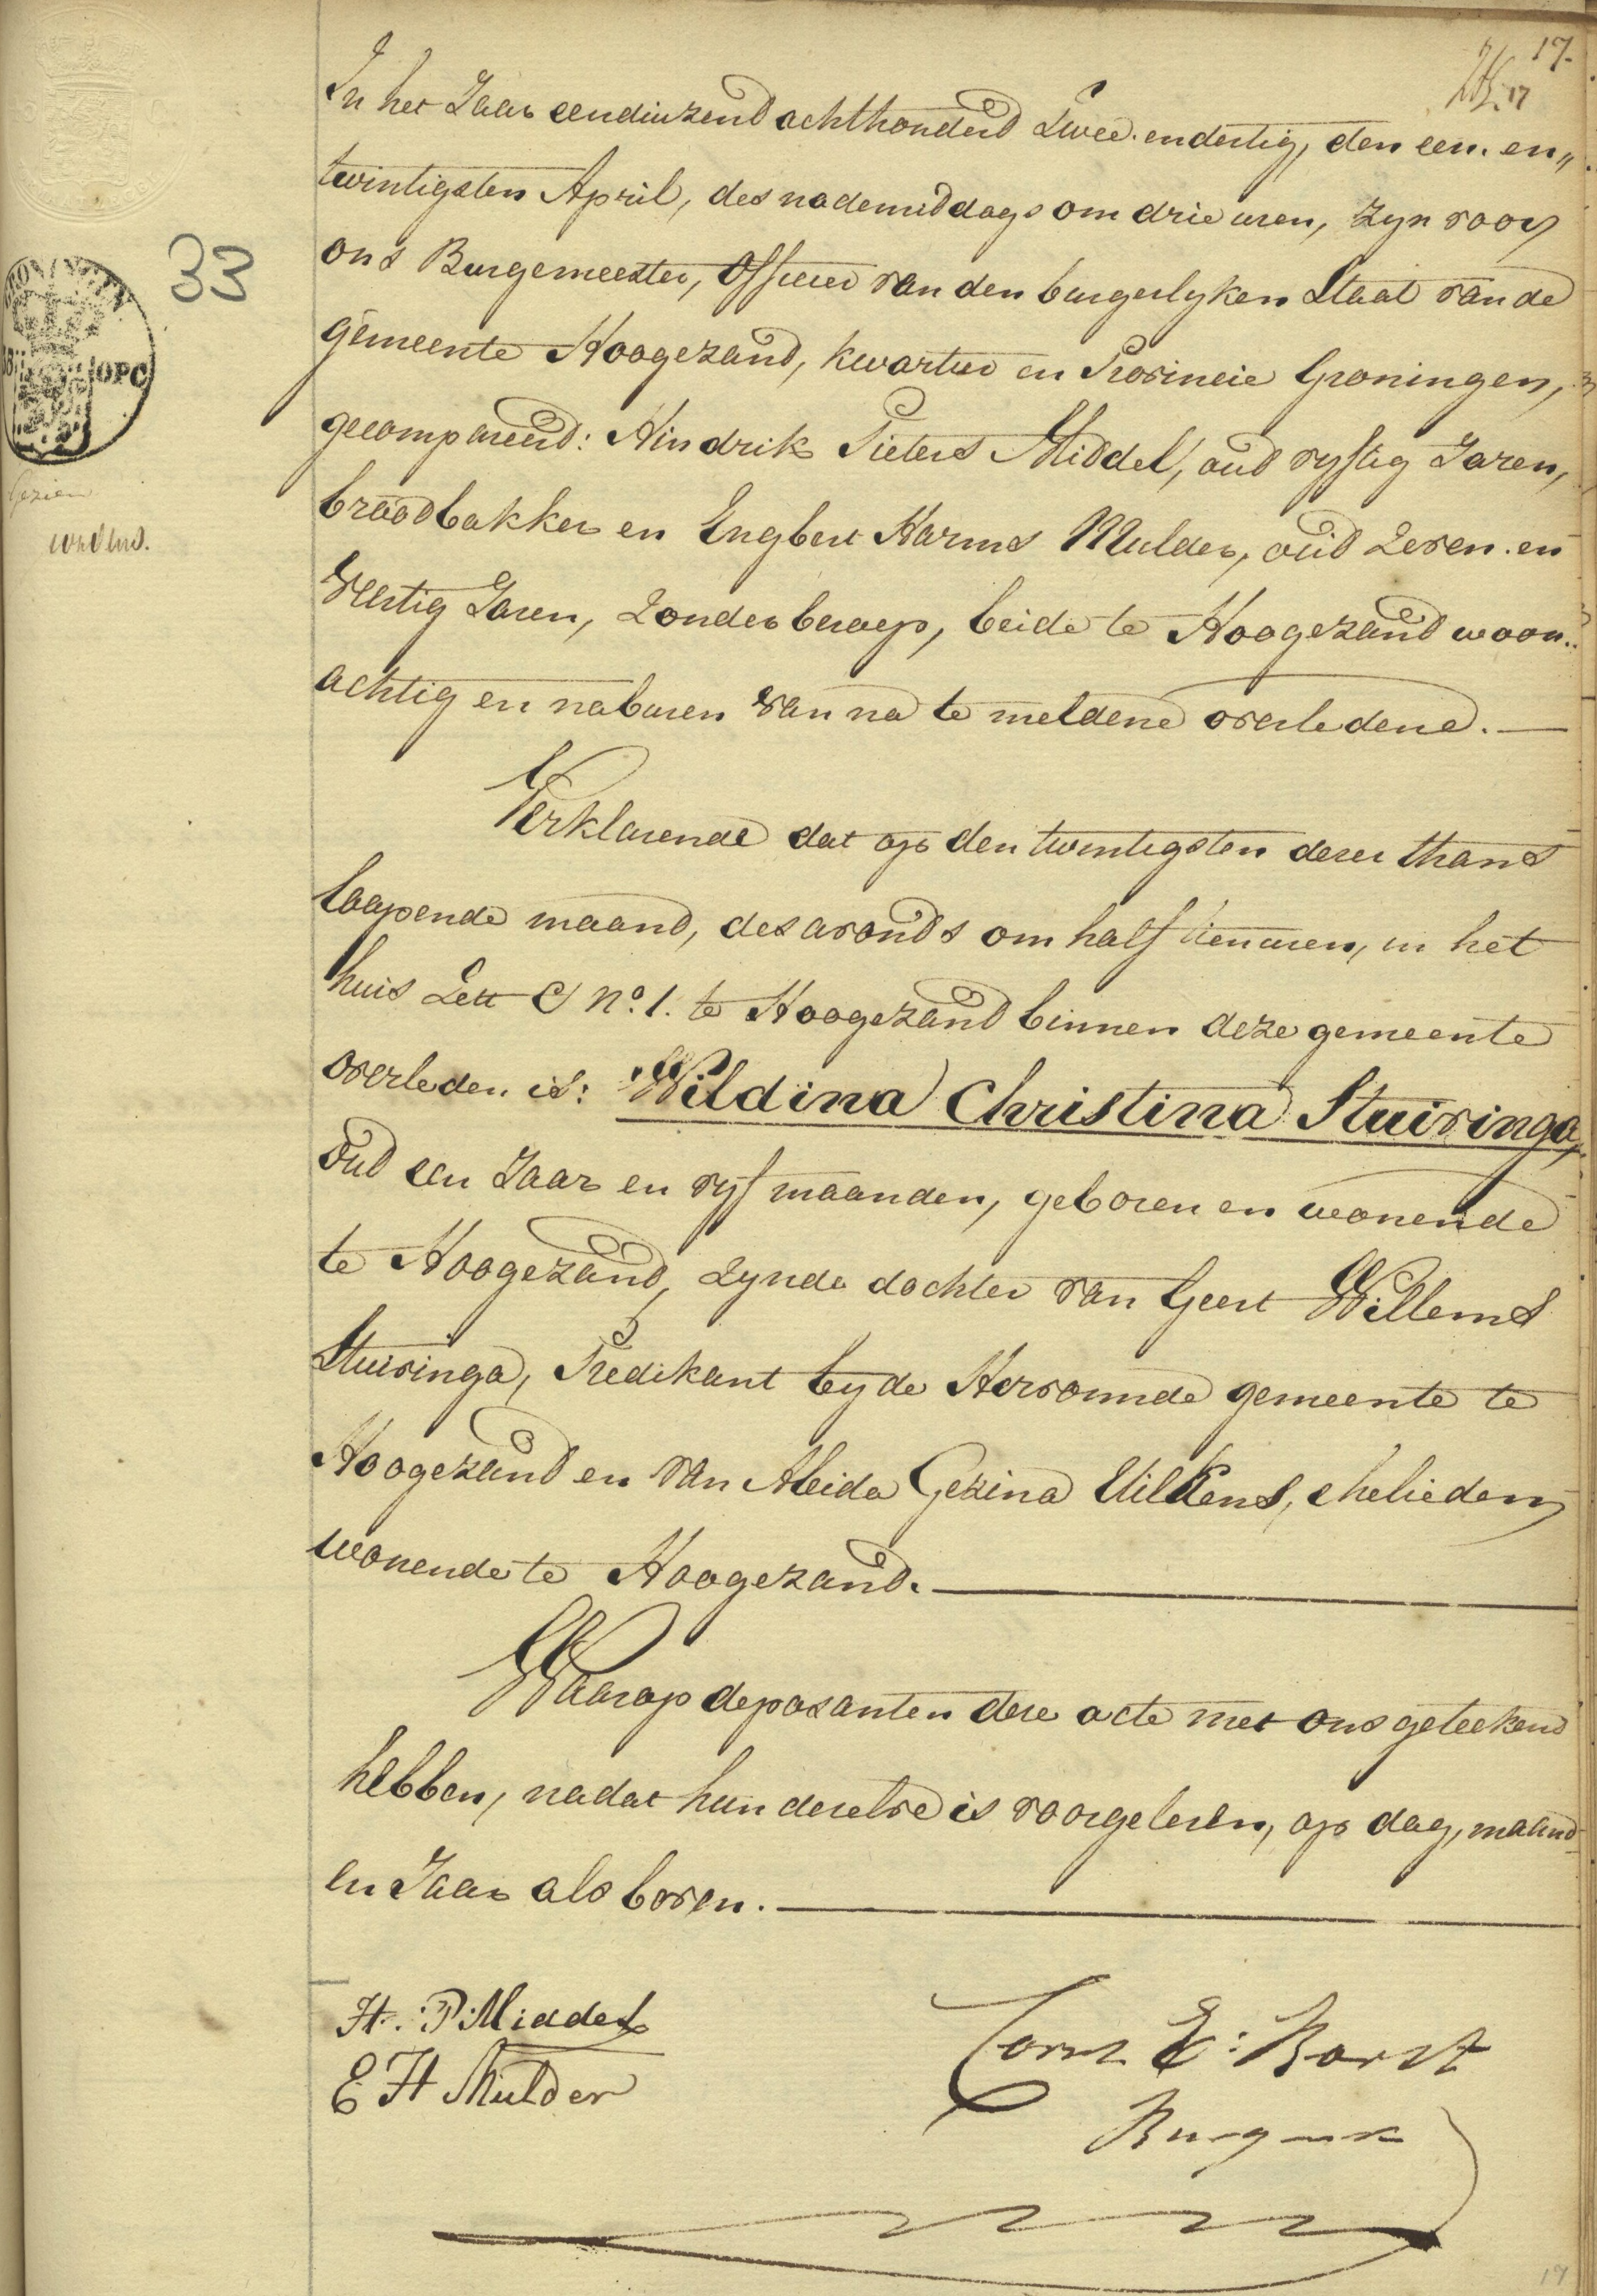 17.
17
In het Jaar eenduizend achthonderd Twee. en dertig, den een. en„
twintigsten April, des nademiddags om drie uren, zyn voor
ons Burgemeester, Officier van den burgerlyken Staat van de
gemeente Hoogezand, kwartier en Provincie Groningen,
gecompareerd: Hindrik Pieters Middel, oud vyftig Jaren,
broodbakker en Engbert Harms Mulder, oud Zeven. en
Veertig Jaren, Zonder beroep, beide te Hoogezand woon..
achtig en naburen van na te meldene overledene.
Verklarende dat op den twintigsten dezer thans
loopende maand, des avonds om half tien uren, in het
huis Lett C No. 1. te Hoogezand binnen deze gemeente
overleden is: Wildina Christina Stuivinga,
Oud een Jaar en vyf maanden, geboren en wonende
te Hoogezand, Zynde dochter van Geert Willems
Stuivinga, Predikant by de Hervormde gemeente te
Hoogezand en van Aleida Gezina Uilkens, ehelieden
wonende te Hoogezand.
Waarop deposanten deze acte met ons geteekend
hebben, nadat hun dezelve is voorgelezen, op dag, maand
en Jaar als boven.
H. P. Middel
E H Mulder
Corns E: Borst
Burgem
33
GRONINGEN
OPC
Gezien
17